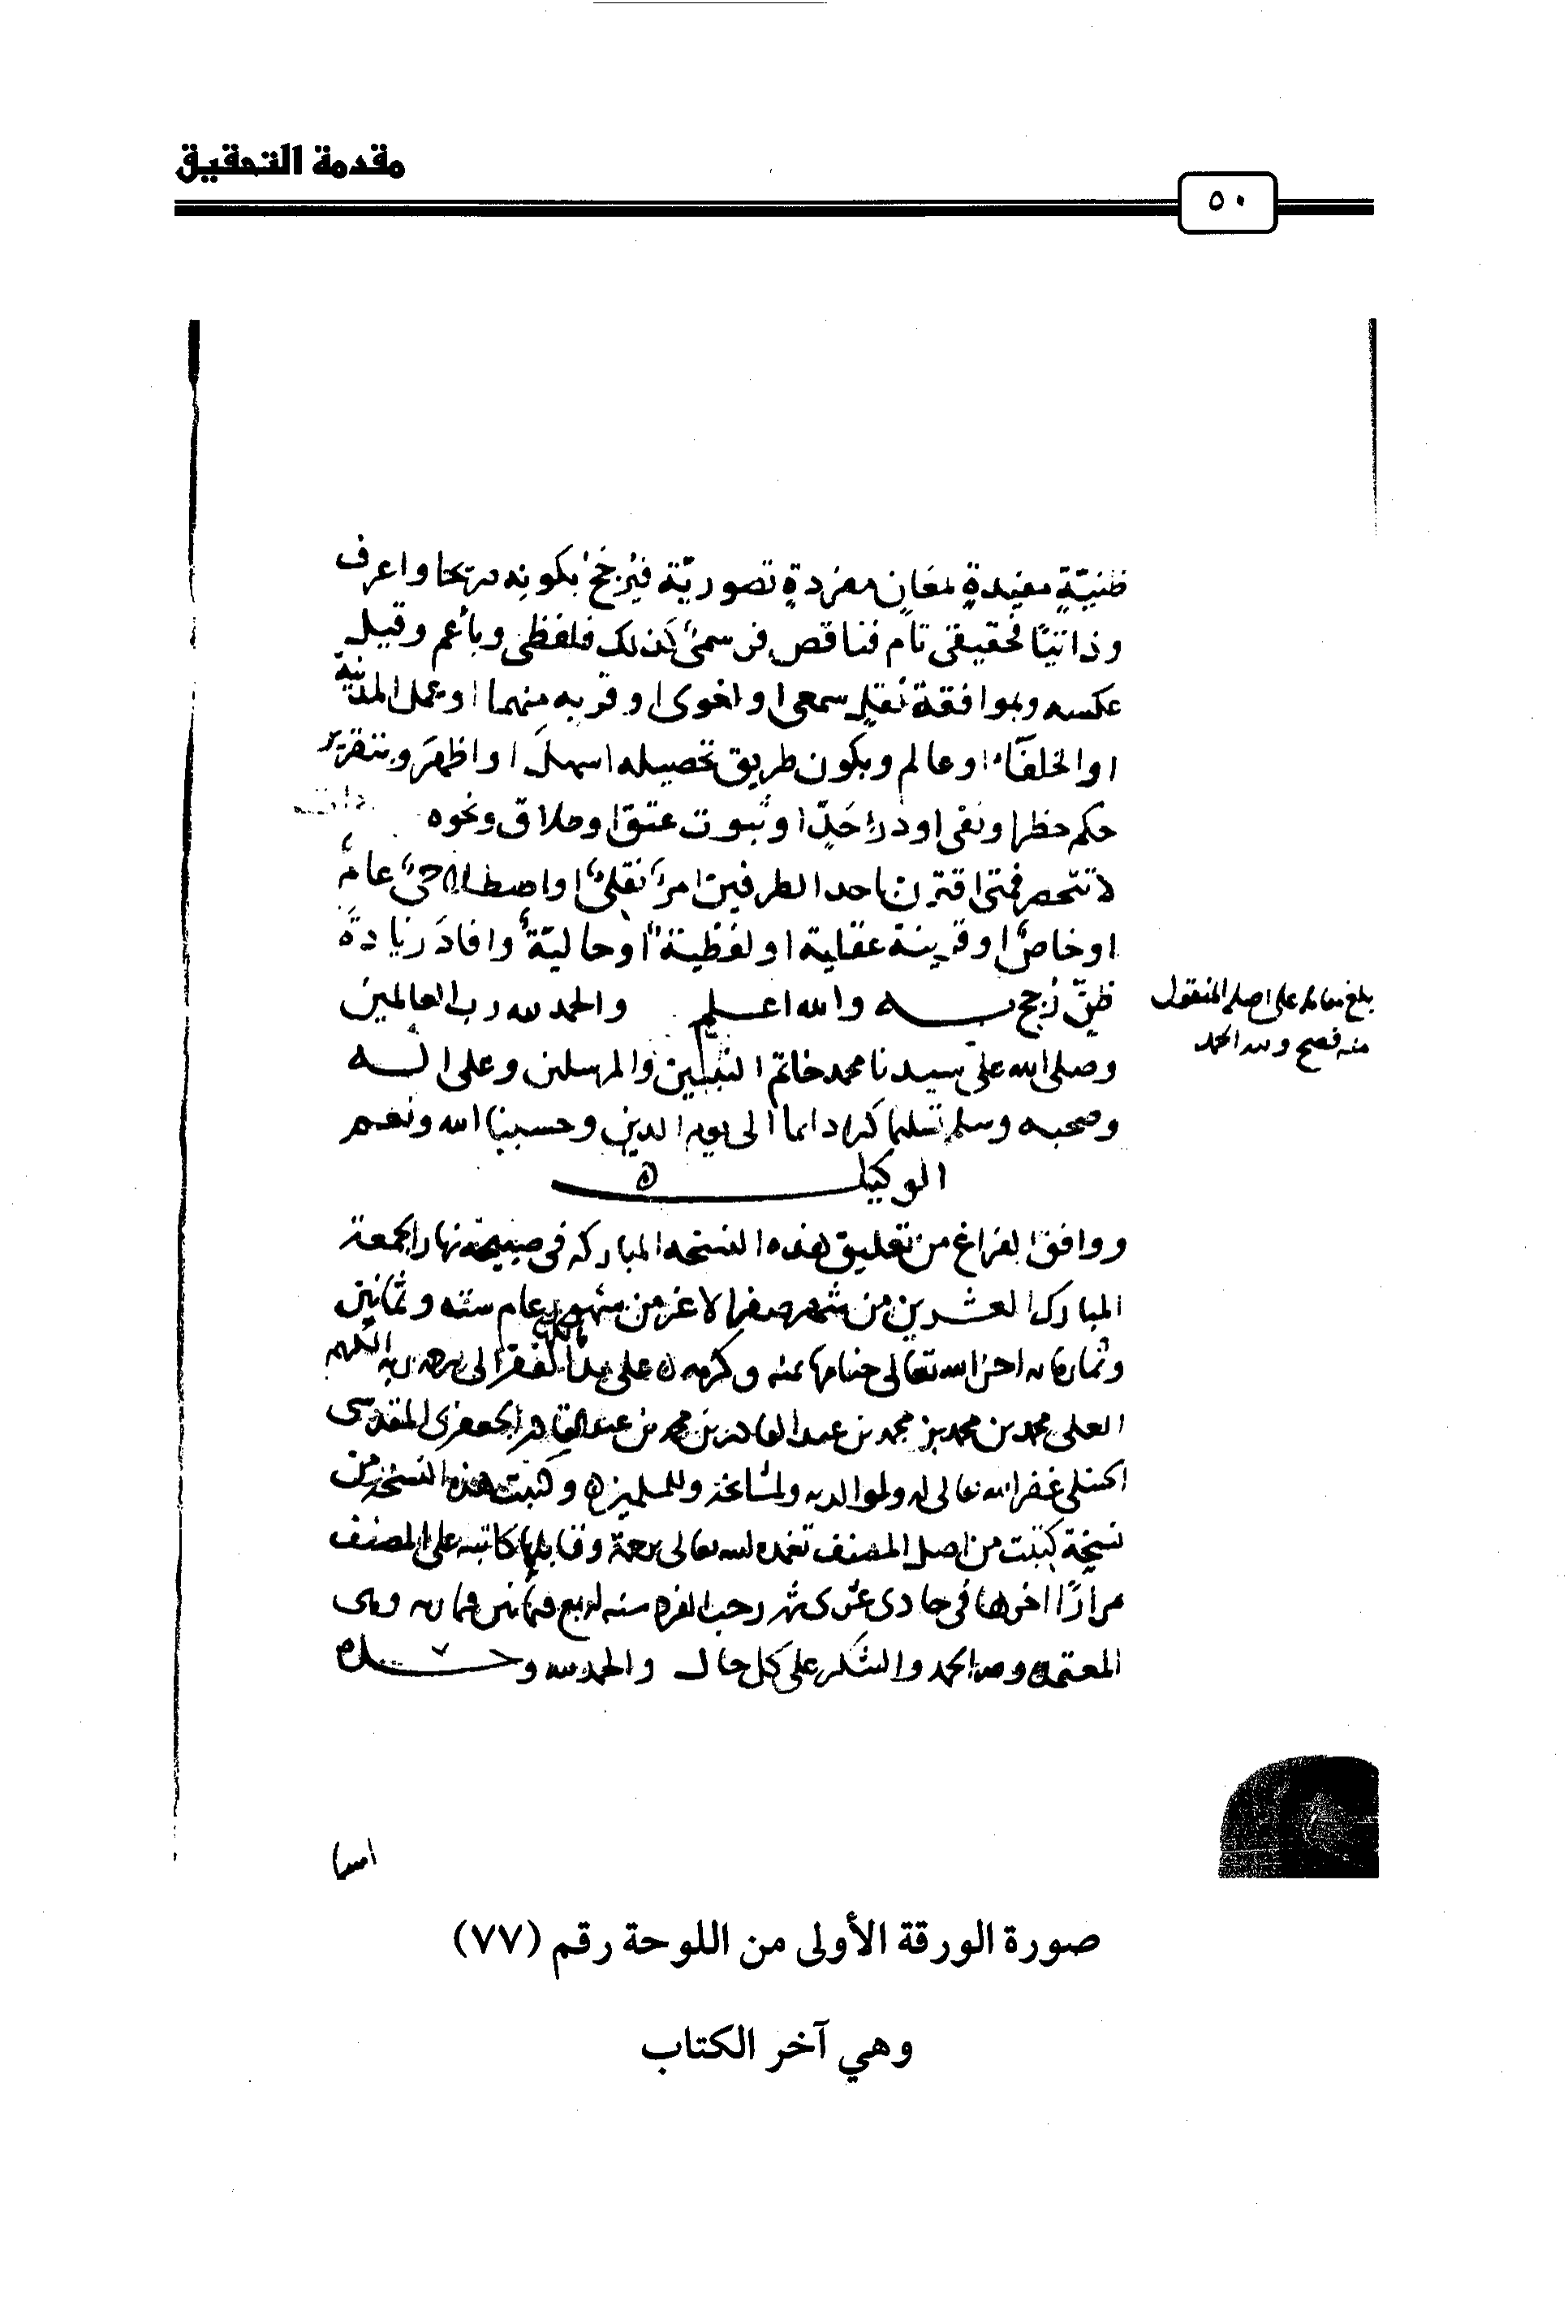 مقدمة التحقيق
٥٠
ظنيّةٍ مفيدةٍ لمعَانٍ مفردةٍ تصوريّة فيُرجَّحُ بكونِه صريحًا واعرف
وذاتيًا فحقيقى تام فناقص فرسمىٌّ كذلك فلفظى وبأعم وقيل
عكسه وبموافقة نقلٍ سمعى او لغوى او قربه منهما او بعمل المدينة
او الخلفآء او عالم وبكون طريق تحصيله اسهلَ او اظهرَ وبتقرير
حكم حظر او نفى او درءِ حَدٍّ او ثبوت عتق او طلاق ونحوه
لا تنحصر فمتى اقترن باحد الطرفين امرٌ نقلىٌّ او اصطلاحىٌّ عامٌ
او خاصٌّ او قرينة عقلية او لفظيةٌ او حاليّةٌ وافادَ زيادةَ
ظنٍّ رُجح به والله اعلم والحمد لله رب العالمين
بلغ مقابلة على اصله المنقول
منه فصح ولله الحمد
وصلى الله على سيدنا محمد خاتم النبيين والمرسلين وعلى اله
وصحبه وسلم تسليما كثيرا دائما الى يوم الدين وحسبنا الله ونعم
الوكيل ه
ووافق الفراغ من تعليق هذه النسخه المباركه فى صبيحة نهار الجمعة
المبارك العشرين من شهر صفر الاغر من شهور عام ستة وثمانين
وثمان مائه احسن الله تعالى ختامها بمنه وكرمه على يد الفقير الى رحمة ربه الكريم
العلى محمد بن محمد بن محمد بن عبد القادر بن محمد بن عبد القادر الجعفرى المقدسى
الحنبلى غفر الله تعالى له ولوالديه ولمشايخه وللمسلمين ه وكتبت هذه النسخة من
نسخة كتبت من اصل المصنف تغمده الله تعالى برحمته وقابلها كاتبه على المصنف
مرارًا اخرها فى حادى عشرى شهر رجب الفرد سنه اربع وثمانين وثمان مايه وهى
المعتمده ولله الحمد والشكر على كل حال والحمد لله وحده
صورة الورقة الأولى من اللوحة رقم (٧٧)
وهي آخر الكتاب